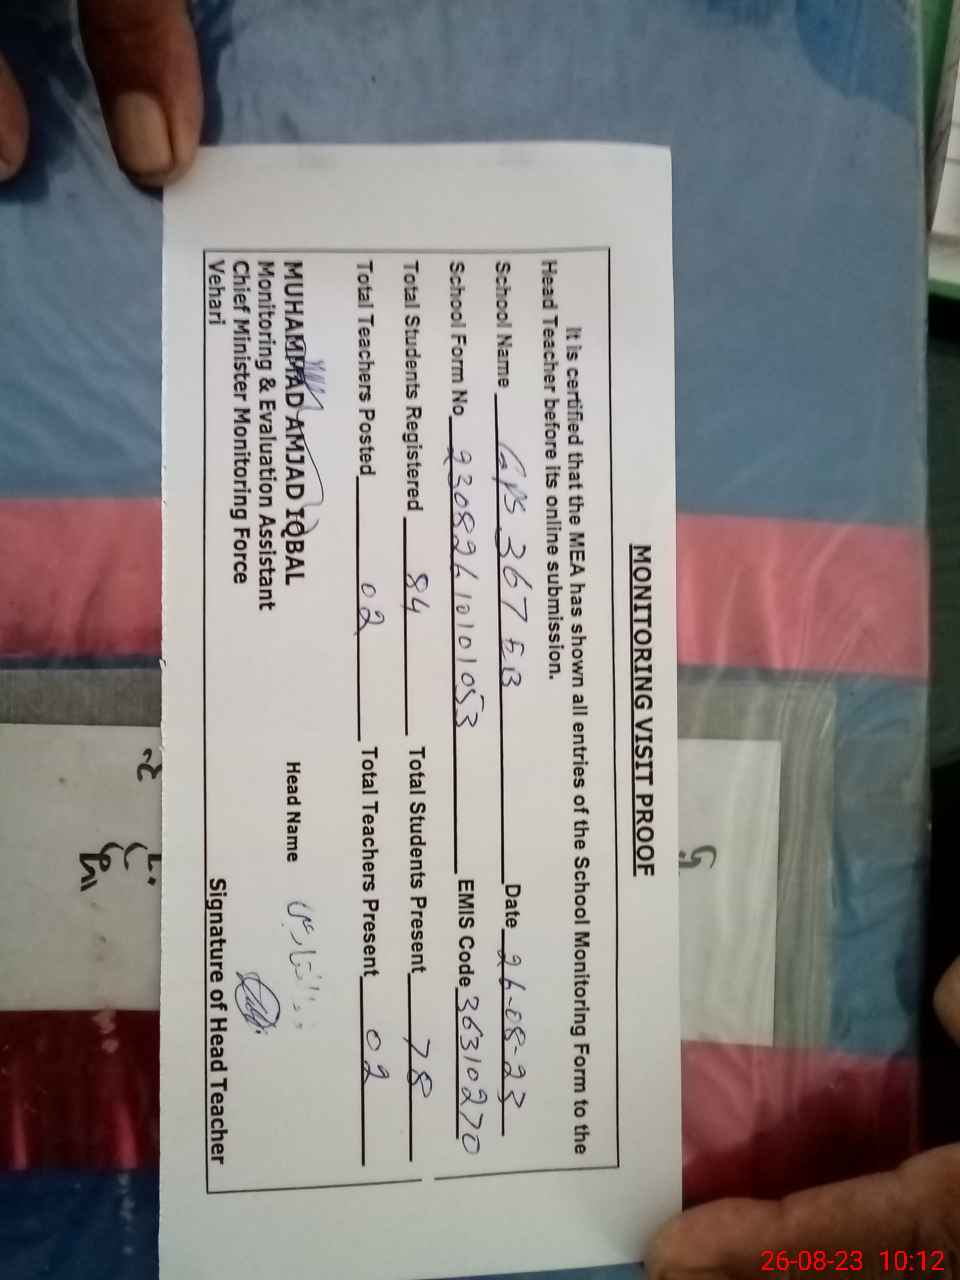 MONITORING VISIT PROOF
It is certified that the MEA has shown all entries of the School Monitoring Form to the
Head Teacher before its online submission.
School Name GPS 367 EB Date 26-08-23
School Form No 23082610101053 EMIS Code 36310270
Total Students Registered 84 Total Students Present 78
Total Teachers Posted 02 Total Teachers Present 02
MUHAMMAD AMJAD IQBAL Head Name
Monitoring & Evaluation Assistant
Chief Minister Monitoring Force
Vehari Signature of Head Teacher
26-08-23 10:12